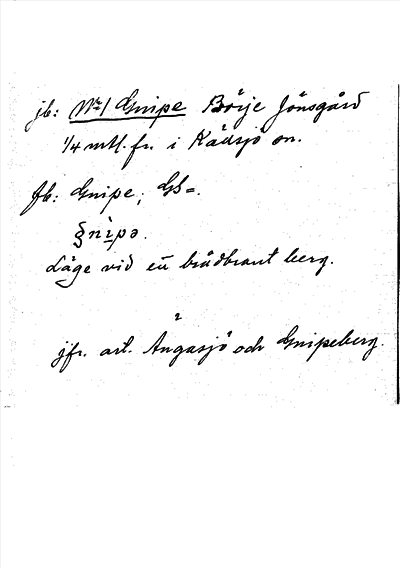 jb: № 1 Gnipe Börje Jönsgård
1/4 mtl. fr. i Rådsjö sn.
Jb. Gnipe; GS=.
§nìpə.
Läge vid en brådbrant berg.
2
jfr. art. Ångasjö och Gnipeberg.